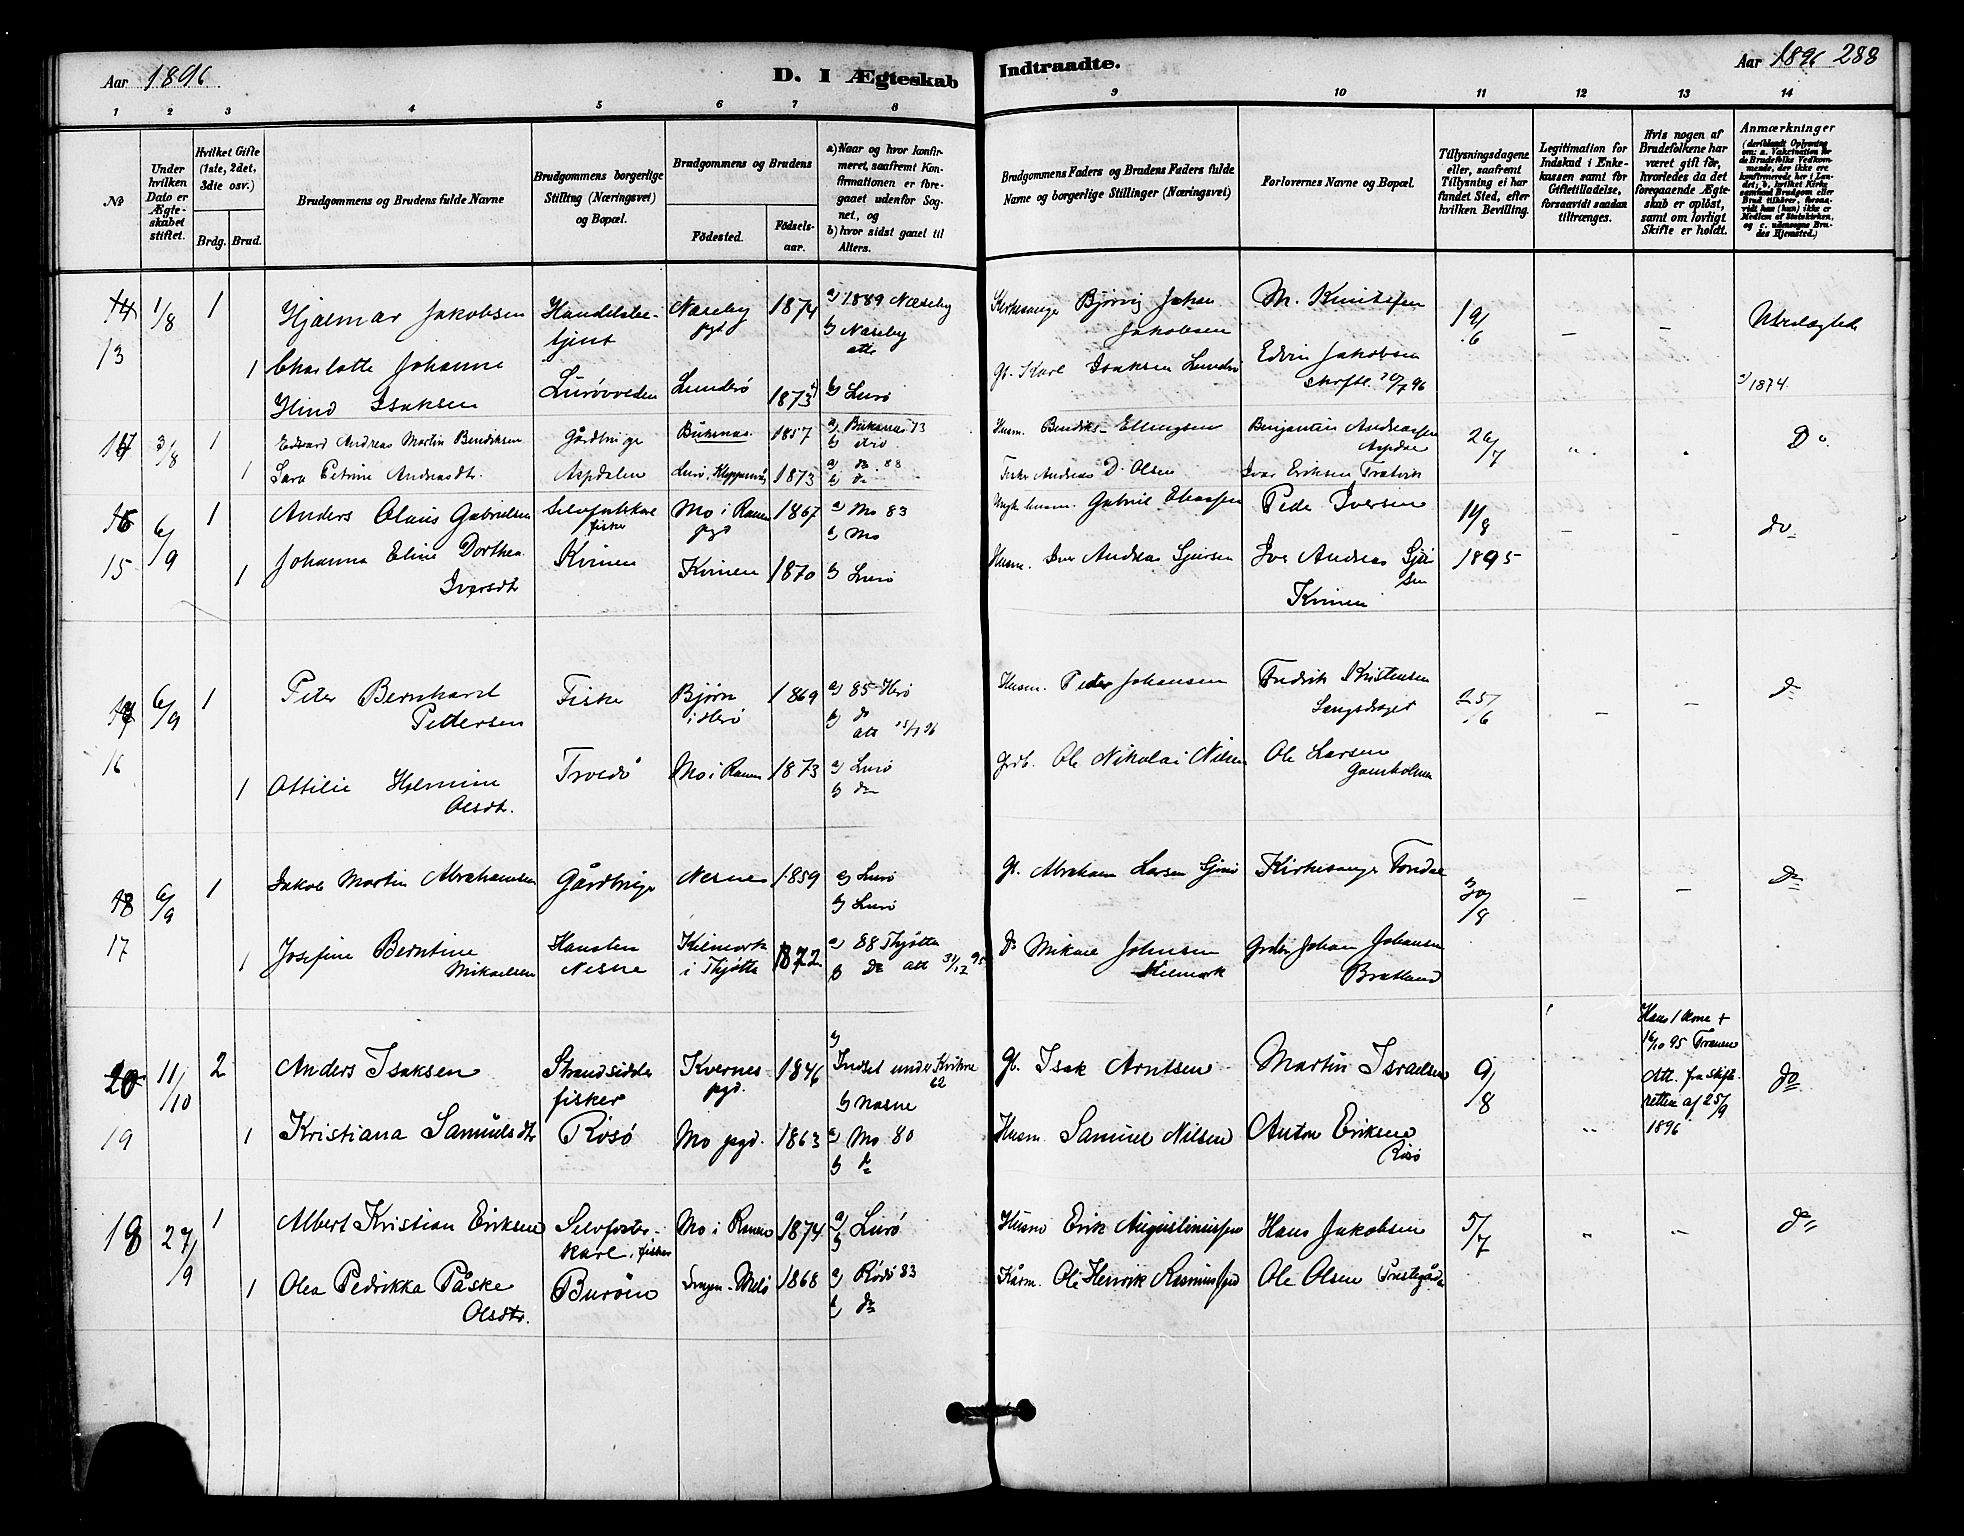 Aar 1896.
D. I Ægteskab
Indtraadte.
Aar 1896 288
1 2 3 4 5 6 7 8 9 10 11 12 13 14
No
Under hvilken Dato er Ægteskabet stiftet.
Hvilket Gifte (1ste, 2det, 3die osv.)
Brdg. Brud.
Brudgommens og Brudens fulde Navne
Brudgommens borgerlige Stilling (Næringsvei) og Bopæl.
Brudgommens og Brudens
Födested.
Födselsaar.
a) Naar og hvor konfirmeret, saafremt Konfirmationen er foregaaet udenfor Sognet, og
b) hvor sidst gaaet til Alters.
Brudgommens Faders og Brudens Faders fulde Navne og borgerlige Stillinger (Næringsvei)
Forlovernes Navne og Bopæl.
Tillysningsdagene eller, saafremt Tillysning ei har fundet Sted, efter hvilken Bevilling.
Legitimation for Indskud i Enkekassen samt for Giftetilladelse, forsaavidt saadan tiltrænges.
Hvis nogen af Brudefolkene har været gift før, hvorledes da det foregaaende Ægteskab er oplöst, samt om lovligt Skifte er holdt.
Anmærkninger (deriblandt Oplysning om: a. Vakcination for de Brudefolks Vedkommende, der ikke ere konfirmerede her i Landet; b. hvilket Kirkesamfund Brudgom eller Brud tilhører, forsaavidt han (hun) ikke er Medlem af Statskirken, og c. udensogns Brudes Hjemsted.)
14 1/8 1 Hjalmar Jakobsen Handelsbe- Næssby 1874 a) 1889 Næsby Kirkesanger Bjørvig Johan M. Knutssen 19/6 – – Ubeslægtede
13 tjent pgd b) Næsby att Jakobsen
1 Charlotte Johanne Lurøvveden Lunderø 1873 b) Lurø G. Karl Isaksen Lunderø Edvin Jakobsen a) 1874.
Hind Isaksen skoftl. 20/7 96
3/8 1 Edvard Andreas Martin Bendiksen Gårdbruger Buksnes 1857 a) Buksnes 73 Husm. Bendiks Ellingsen Benjamin Andreassen 26/7 " " Do.
1 Sara Petrine Andreasdt. Aspdalen Lurø, 1873 a) do. 88 Fisker Andreas D. Olsen Ivar Eriksen Tratvik
6/9 1 Anders Olaus Gabrielsen Selvfosterkarl Mo i Ranen 1867 a) Mo 83 Husm. Gabriel Eliassen Peder Iversen 14/8 – – do
fisker pgd b) Mo
15 1 Johanna Eline Dorthea Kvinen Kvinen 1870 b) Lurø Husm. Iver Andreas Sjursen Iver Andreas Sjursen 1895
Iversdt Kvinen
17 6/9 1 Peter Bernhard Fisker Bjørn 1869 a) 85 Herø Husm. Peder Johansen Fredrik Kristensen 25/6 – – do
Pettersen i Herø b) do att
16 1 Ottilie Helmine Trvedø Mo i Ranen 1873 a) Lurø Grdb. Ole Nikolai Nilsen Ole Larsen
Olsdt. b) do
18 6/9 1 Jakob Martin Abrahamsen Gårdbruger Nesne 1859 a) Lurø G. Abraham Larsen Kirkesanger Tondal 30/8 – – do
b) Lurø
17 1 Josefine Berntine Hansten Kilmark 1872 a) 88 Thjøtta Do Mikael Johnsen Johan Johansen
Mikaelsen Nesne i Thjøtta b) Do att 31/12 95 Kilmark Bratland
20 11/10 2 Anders Isaksen Strandsidder Kvernes 1846 a) Indset under Kvikne 62 G. Isak Arntsen Martin Israelsen 9/8 Hans 1 kone + 16/10 95 Tranen do
fisker pgd. b) Nasne Att. fra skifteretten af 25/9 1896
19 1 Kristiana Samuelsdtr Rosø Mo pgd. 1863 a) Mo 80 Husm Samuel Nilsen Anton Eriksen
b) do Rosø
18 27/9 1 Albert Kristian Eriksen Selvfoster- Mo i Ranen 1874 a) Lurø Husm Erik Augustinussen Hans Jakobsen 5/7 " – do
karl, fisker b)
1 Olea Pedrikka Påske Burøen Melø 1868 a) Rödö 83 Kårm. Ole Henrik Rasmussen Ole Olsen Prestegården
Olsdtr. b) do